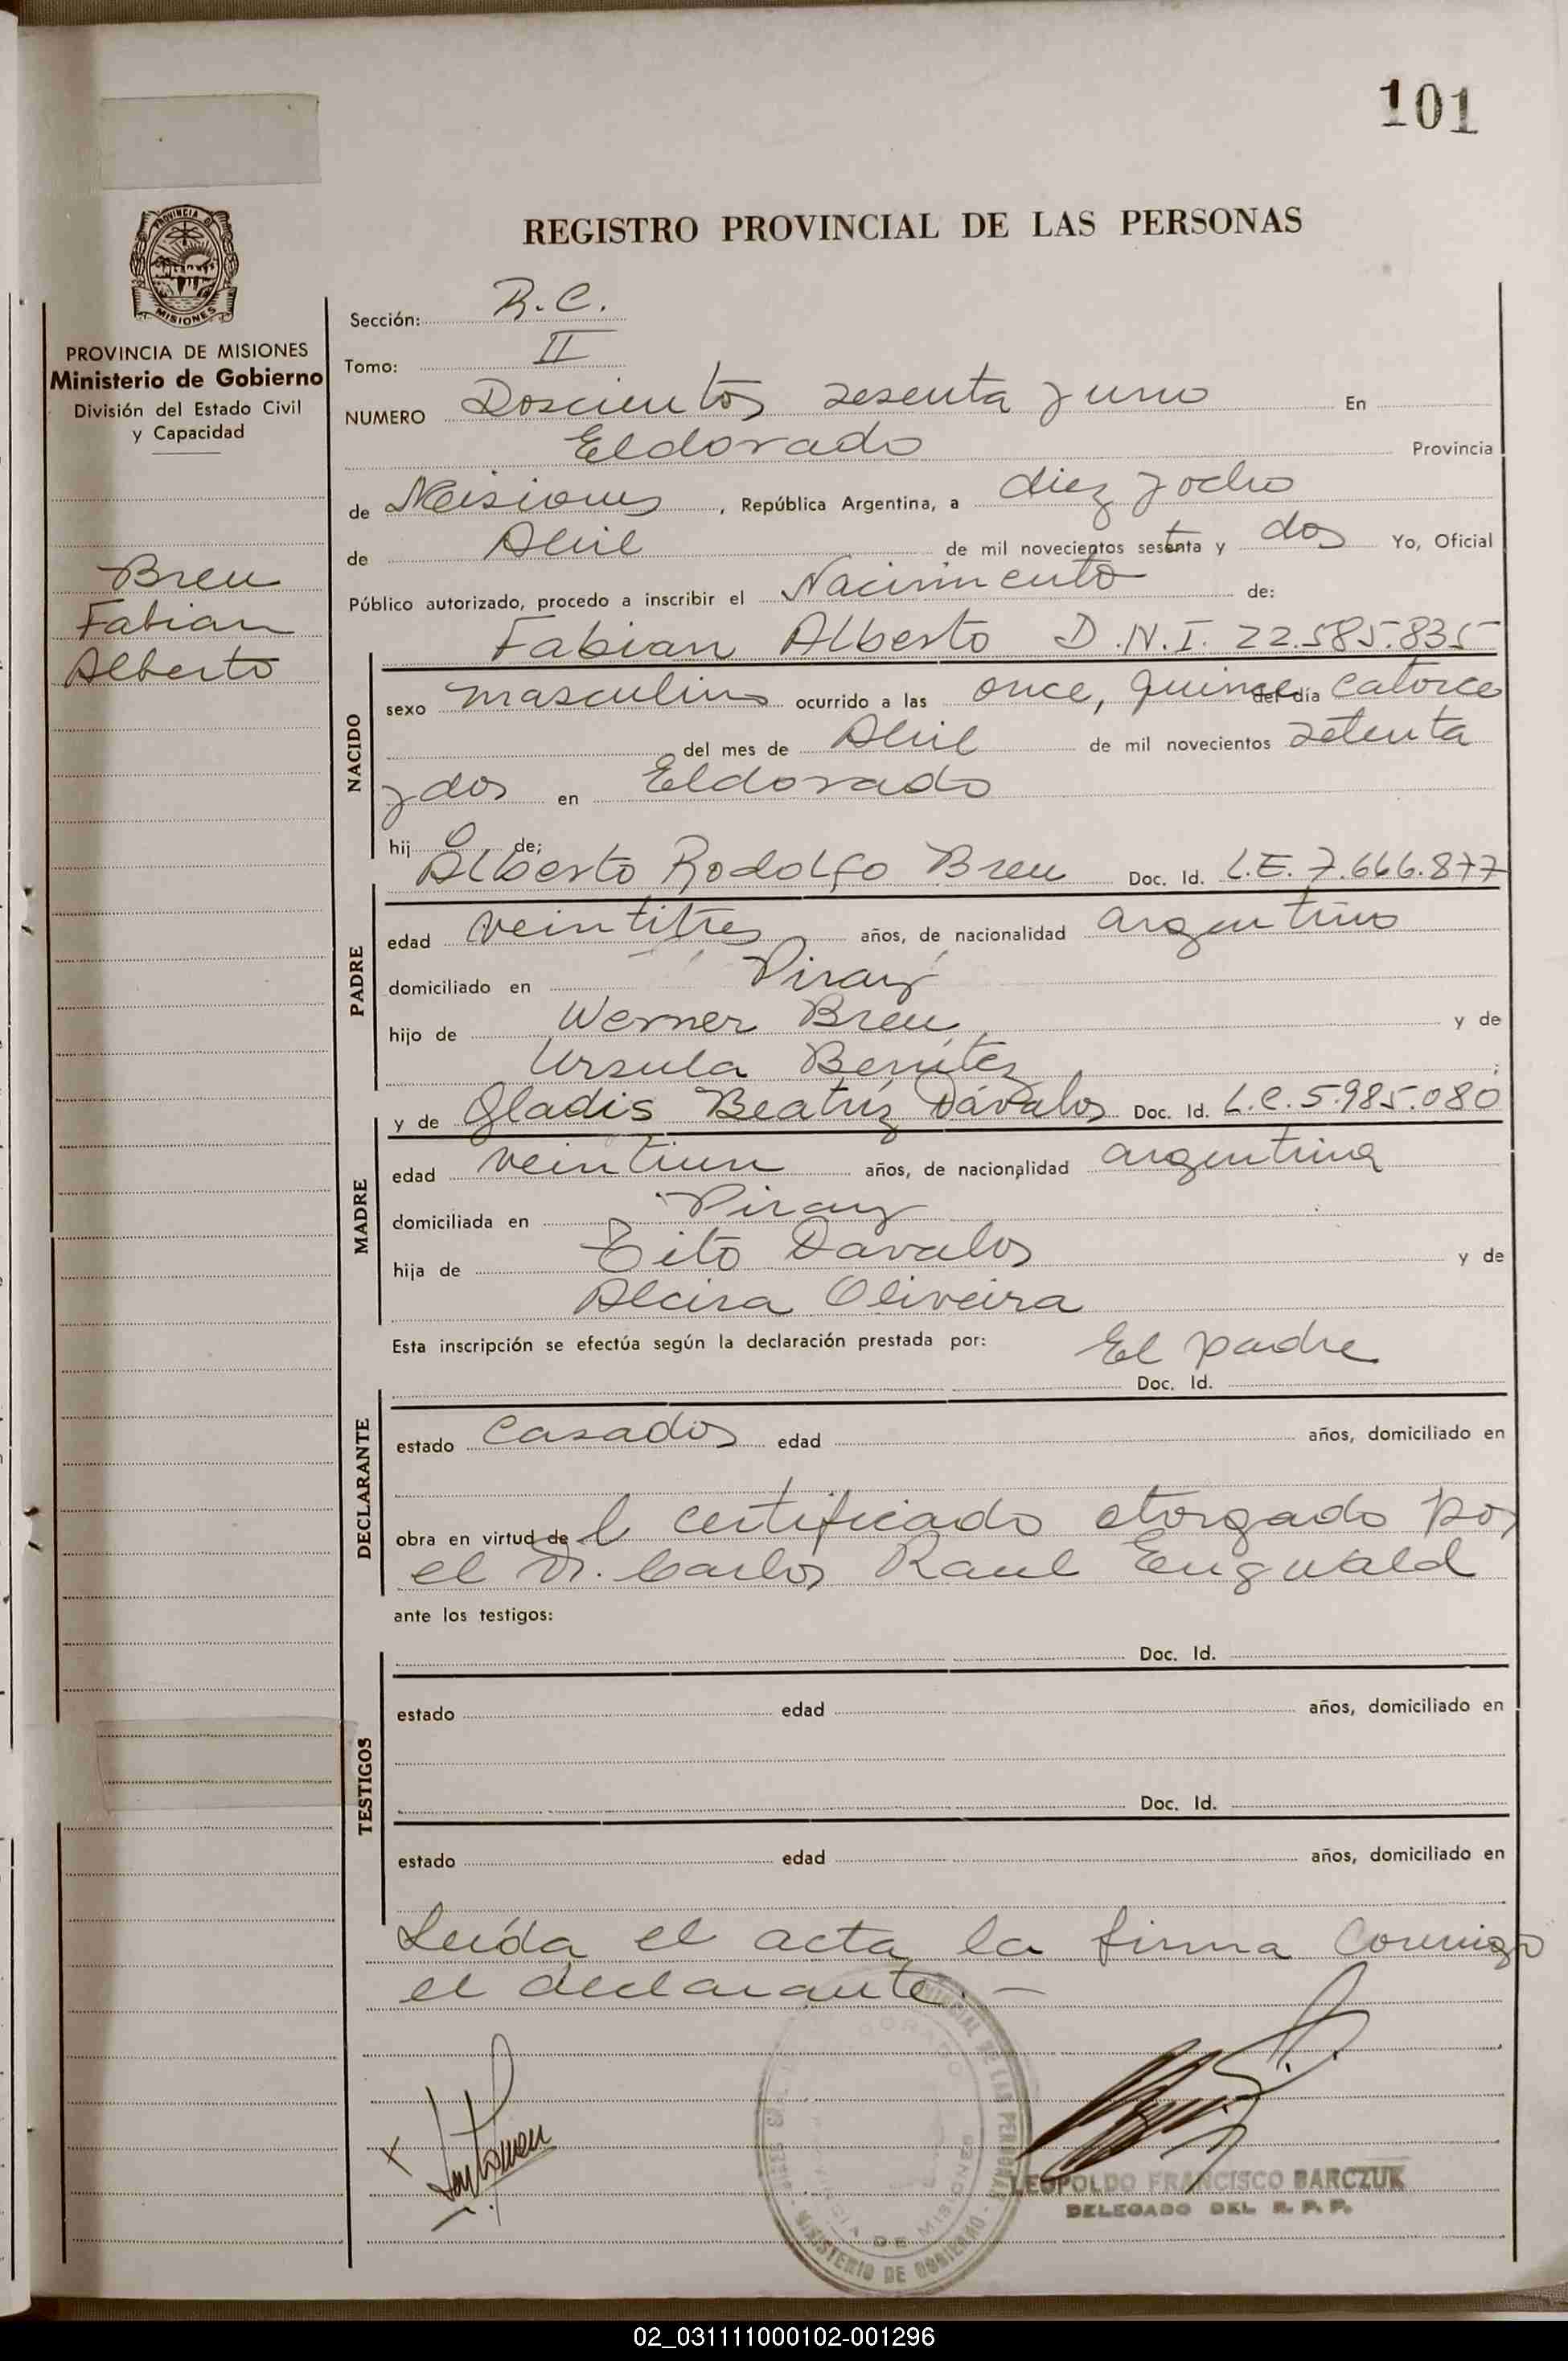 101
REGISTRO PROVINCIAL DE LAS PERSONAS
PROVINCIA DE MISIONES
Ministerio de Gobierno
División del Estado Civil
y Capacidad
Breu
Fabian
Alberto
Sección: R.C.
Tomo: II
NUMERO Doscientos sesenta y uno En
Eldorado Provincia
de Misiones, República Argentina, a diez y ocho
de Abril de mil novecientos sesenta y dos Yo, Oficial
Público autorizado, procedo a inscribir el Nacimiento de:
Fabian Alberto D.N.I. 22.585.835
NACIDO
sexo masculino ocurrido a las once, quince del día catorce
del mes de Abril de mil novecientos setenta
y dos en Eldorado
hijo de;
Alberto Rodolfo Breu Doc. Id. L.E. 7.666.877
PADRE
edad veintitres años, de nacionalidad argentino
domiciliado en Piray
hijo de Werner Breu y de
Ursula Benítez;
y de Gladis Beatríz Dávalos Doc. Id. L.C. 5.985.080
MADRE
edad veintiun años, de nacionalidad argentina
domiciliada en Piray
hija de Tito Davalos y de
Alcira Oliveira
Esta inscripción se efectúa según la declaración prestada por: El padre
Doc. Id.
DECLARANTE
estado casados edad años, domiciliado en
obra en virtud de l certificado otorgado por
el Dr. Carlos Raul Enguald
ante los testigos:
Doc. Id.
TESTIGOS
estado edad años, domiciliado en
Doc. Id.
estado edad años, domiciliado en
Leída el acta, la firma conmigo
el declarante.—
LEOPOLDO FRANCISCO BARCZUK
DELEGADO DEL R. P. P.
MINISTERIO DE GOBIERNO
PROVINCIA DE MISIONES
02_031111000102-001296